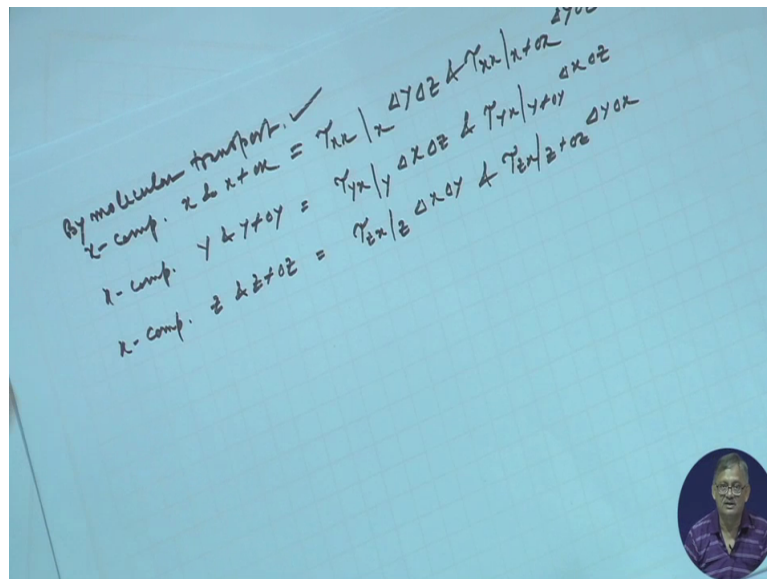 By molecular transport. ✓
x-comp. x & x+Δx = τxx|x ΔyΔz & τxx|x+Δx ΔyΔz
x-comp. y & y+Δy = τyx|y ΔxΔz & τyx|y+Δy ΔxΔz
x-comp. z & z+Δz = τzx|z ΔxΔy & τzx|z+Δz ΔyΔx